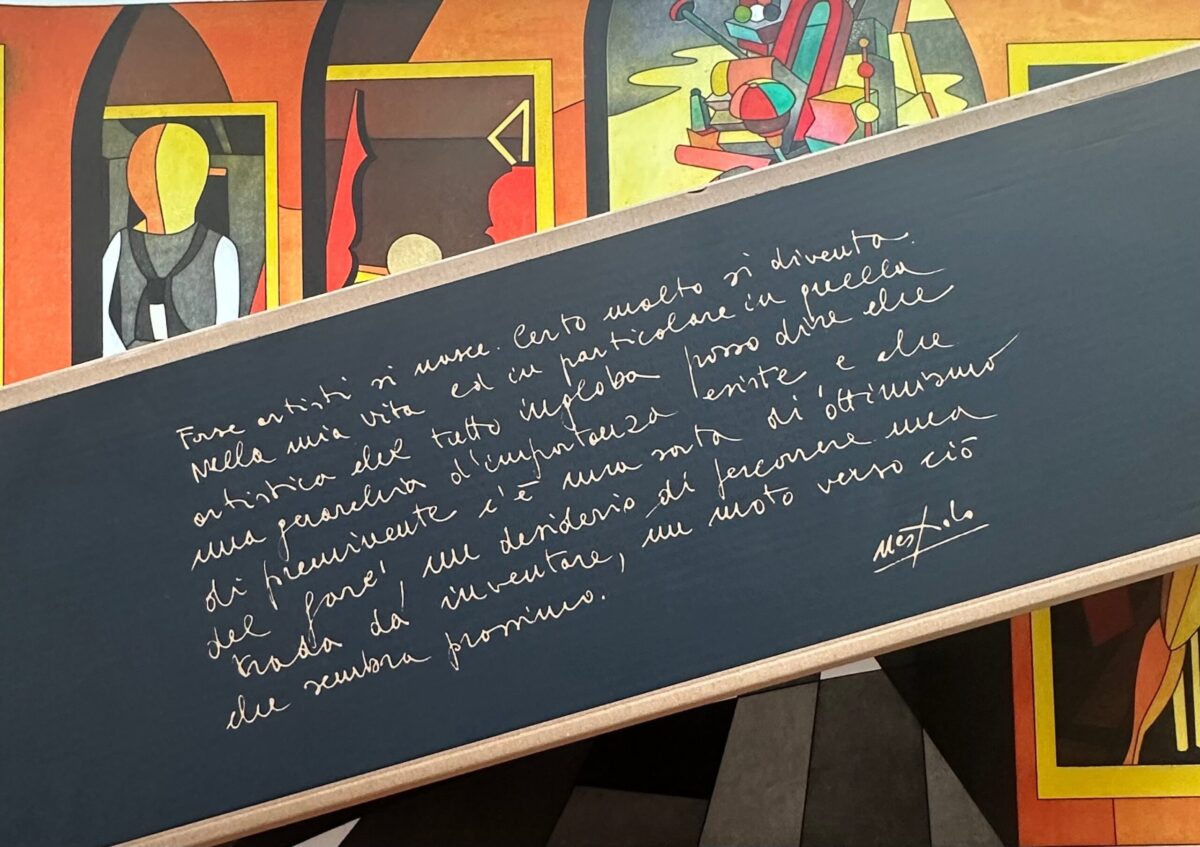 Forse artisti si nasce. Certo molto si diventa.
Nella mia vita ed in particolare in quella
artistica che tutto ingloba posso dire che
una gerarchia d'importanza esiste e che
di preminente c'è una sorta di 'ottimismo
del fare', un desiderio di percorrere una
strada da inventare, un moto verso ciò
che sembra prossimo.
Nespolo